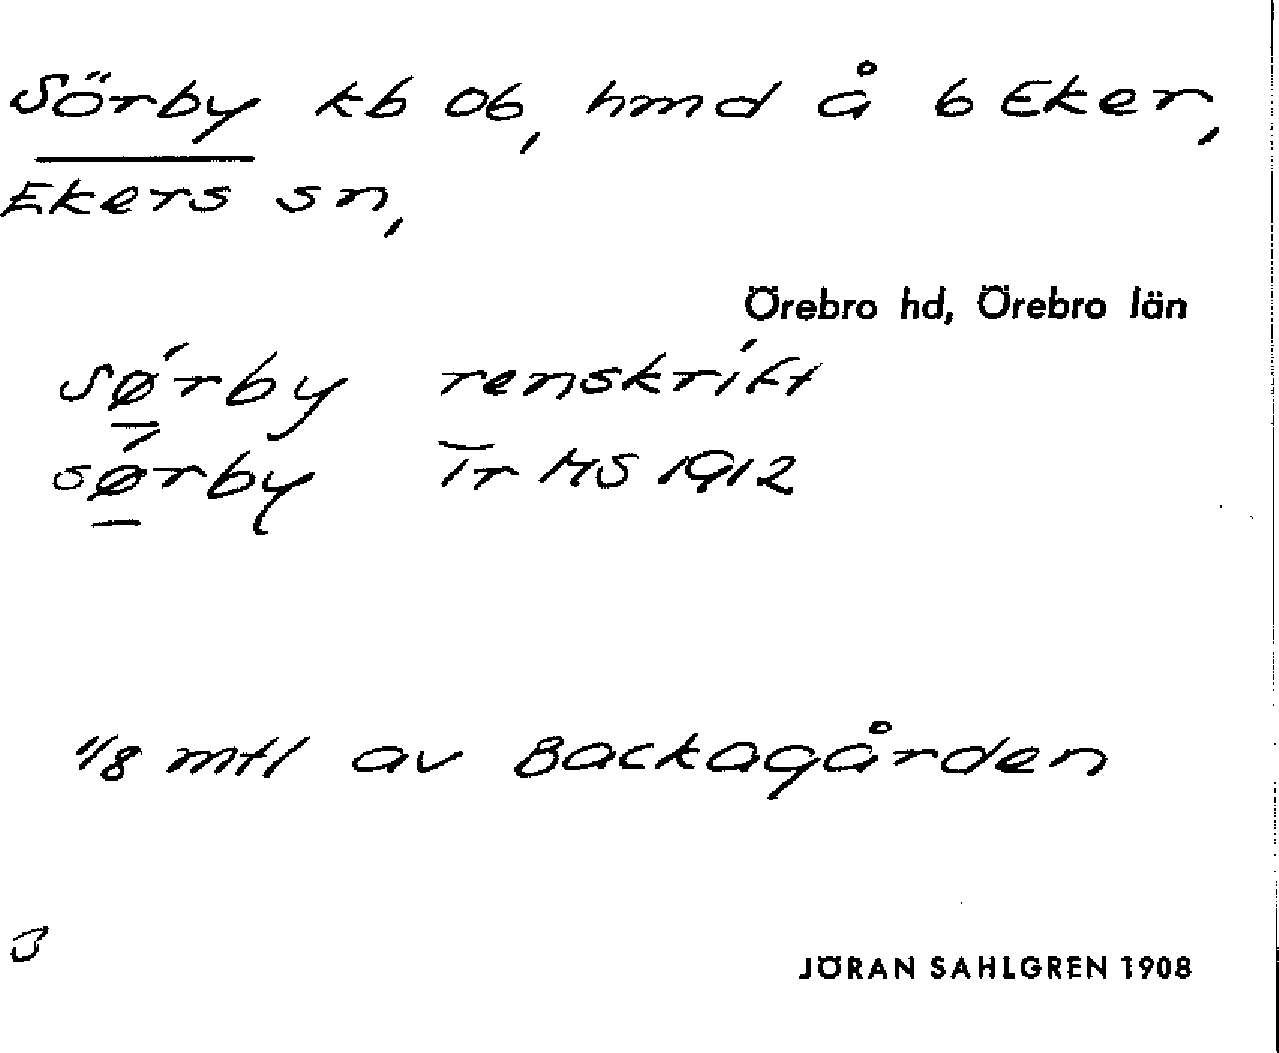 Sörby kb 06, hmd å 6 Eker,
Ekers sn,
Örebro hd, Örebro län
sǿ̱rby renskrift
sǿ̱rby Tr MS 1912
1/8 mtl av Backagården
3
JÖRAN SAHLGREN 1908